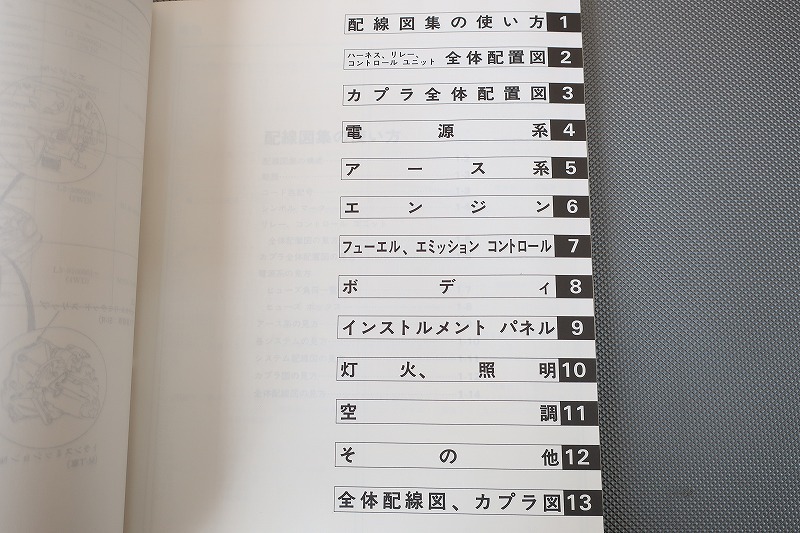 配線図集の使い方 1
ハーネス、リレー、
コントロール ユニット 全体配置図 2
カプラ全体配置図 3
電源系 4
アース系 5
エンジン 6
フューエル、エミッション コントロール 7
ボディ 8
インストルメント パネル 9
灯火、照明 10
空調 11
その他 12
全体配線図、カプラ図 13
配線図集の使い方